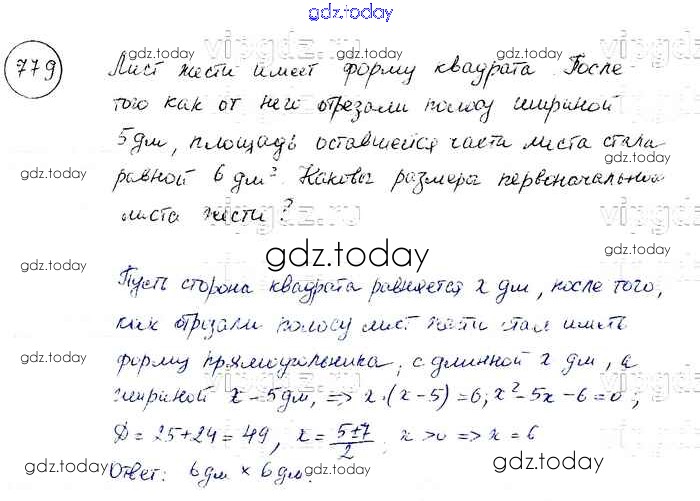 gdz.today
779
Лист жести имеет форму квадрата. После
того как от него отрезали полосу шириной
5 дм, площадь оставшейся части листа стала
равной 6 дм². Каковы размеры первоначального
листа жести?
gdz.today
Пусть сторона квадрата равняется x дм, после того,
как отрезали полосу лист жести стал иметь
форму прямоугольника, с длинной x дм, а
шириной x - 5 дм, => x·(x-5)=6; x²-5x-6=0;
Д = 25+24=49, x = 5±7/2, x>0 => x=6
Ответ: 6 дм × 6 дм.
gdz.today